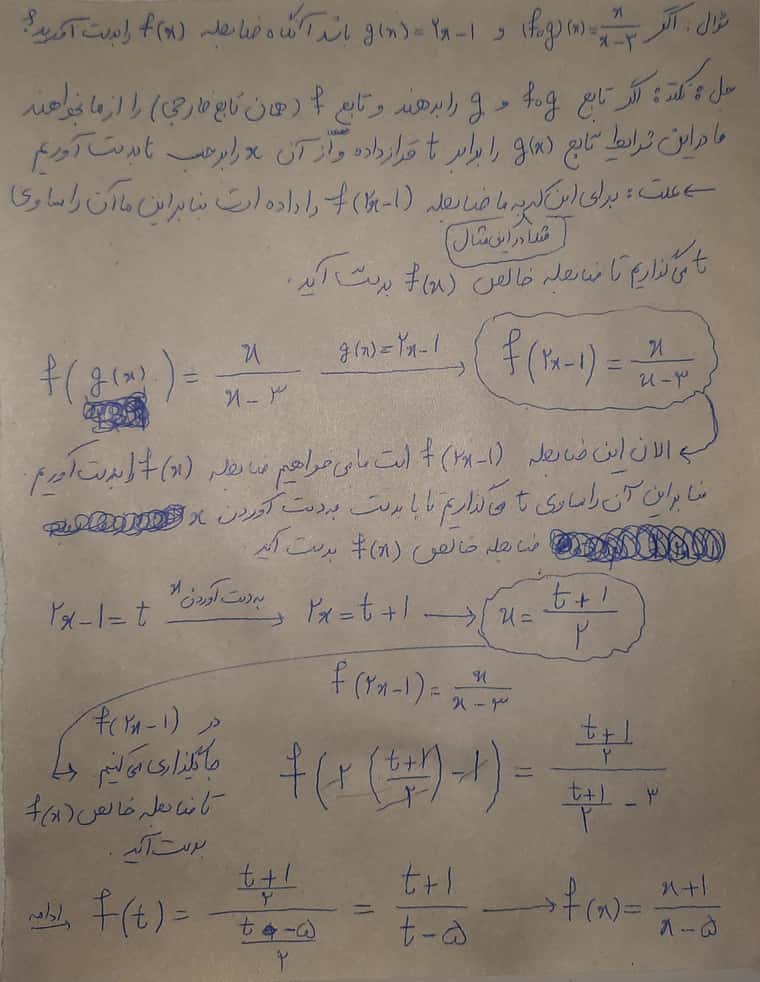 سوال: اگر (fog)(x) = x/(x-۳) و g(x) = ۲x-۱ باشد آنگاه ضابطه f(x) را بدست آورید؟
حل: نکته: اگر تابع fog و g را بدهند و تابع f (همان تابع خارجی) را از ما بخواهند
ما در این شرایط تابع g(x) را برابر t قرار داده و از آن x را برحسب t بدست آوریم
← علت: برای این که به ما ضابطه f(۲x-۱) را داده است بنابراین ما آن را مساوی
مثلا در این مثال
t می‌گذاریم تا ضابطه خالص f(x) بدست آید.
f(g(x)) = x/(x-۳) → g(x)=۲x-۱ → f(۲x-۱) = x/(x-۳)
← الان این ضابطه f(۲x-۱) است ما می خواهیم ضابطه f(x) را بدست آوریم.
بنابراین آن را مساوی t می‌گذاریم تا با بدست بدست آوردن x
ضابطه خالص f(x) بدست آید.
۲x-۱ = t → به دست آوردن x → ۲x = t+۱ → x = (t+۱)/۲
f(۲x-۱) = x/(x-۳)
در f(۲x-۱)
جاگذاری می‌کنیم
تا ضابطه خالص f(x)
بدست آید.
f(۲((t+۱)/۲)-۱) = ((t+۱)/۲)/((t+۱)/۲ - ۳)
ادامه → f(t) = ((t+۱)/۲)/((t-۵)/۲) = (t+۱)/(t-۵) → f(x) = (x+۱)/(x-۵)